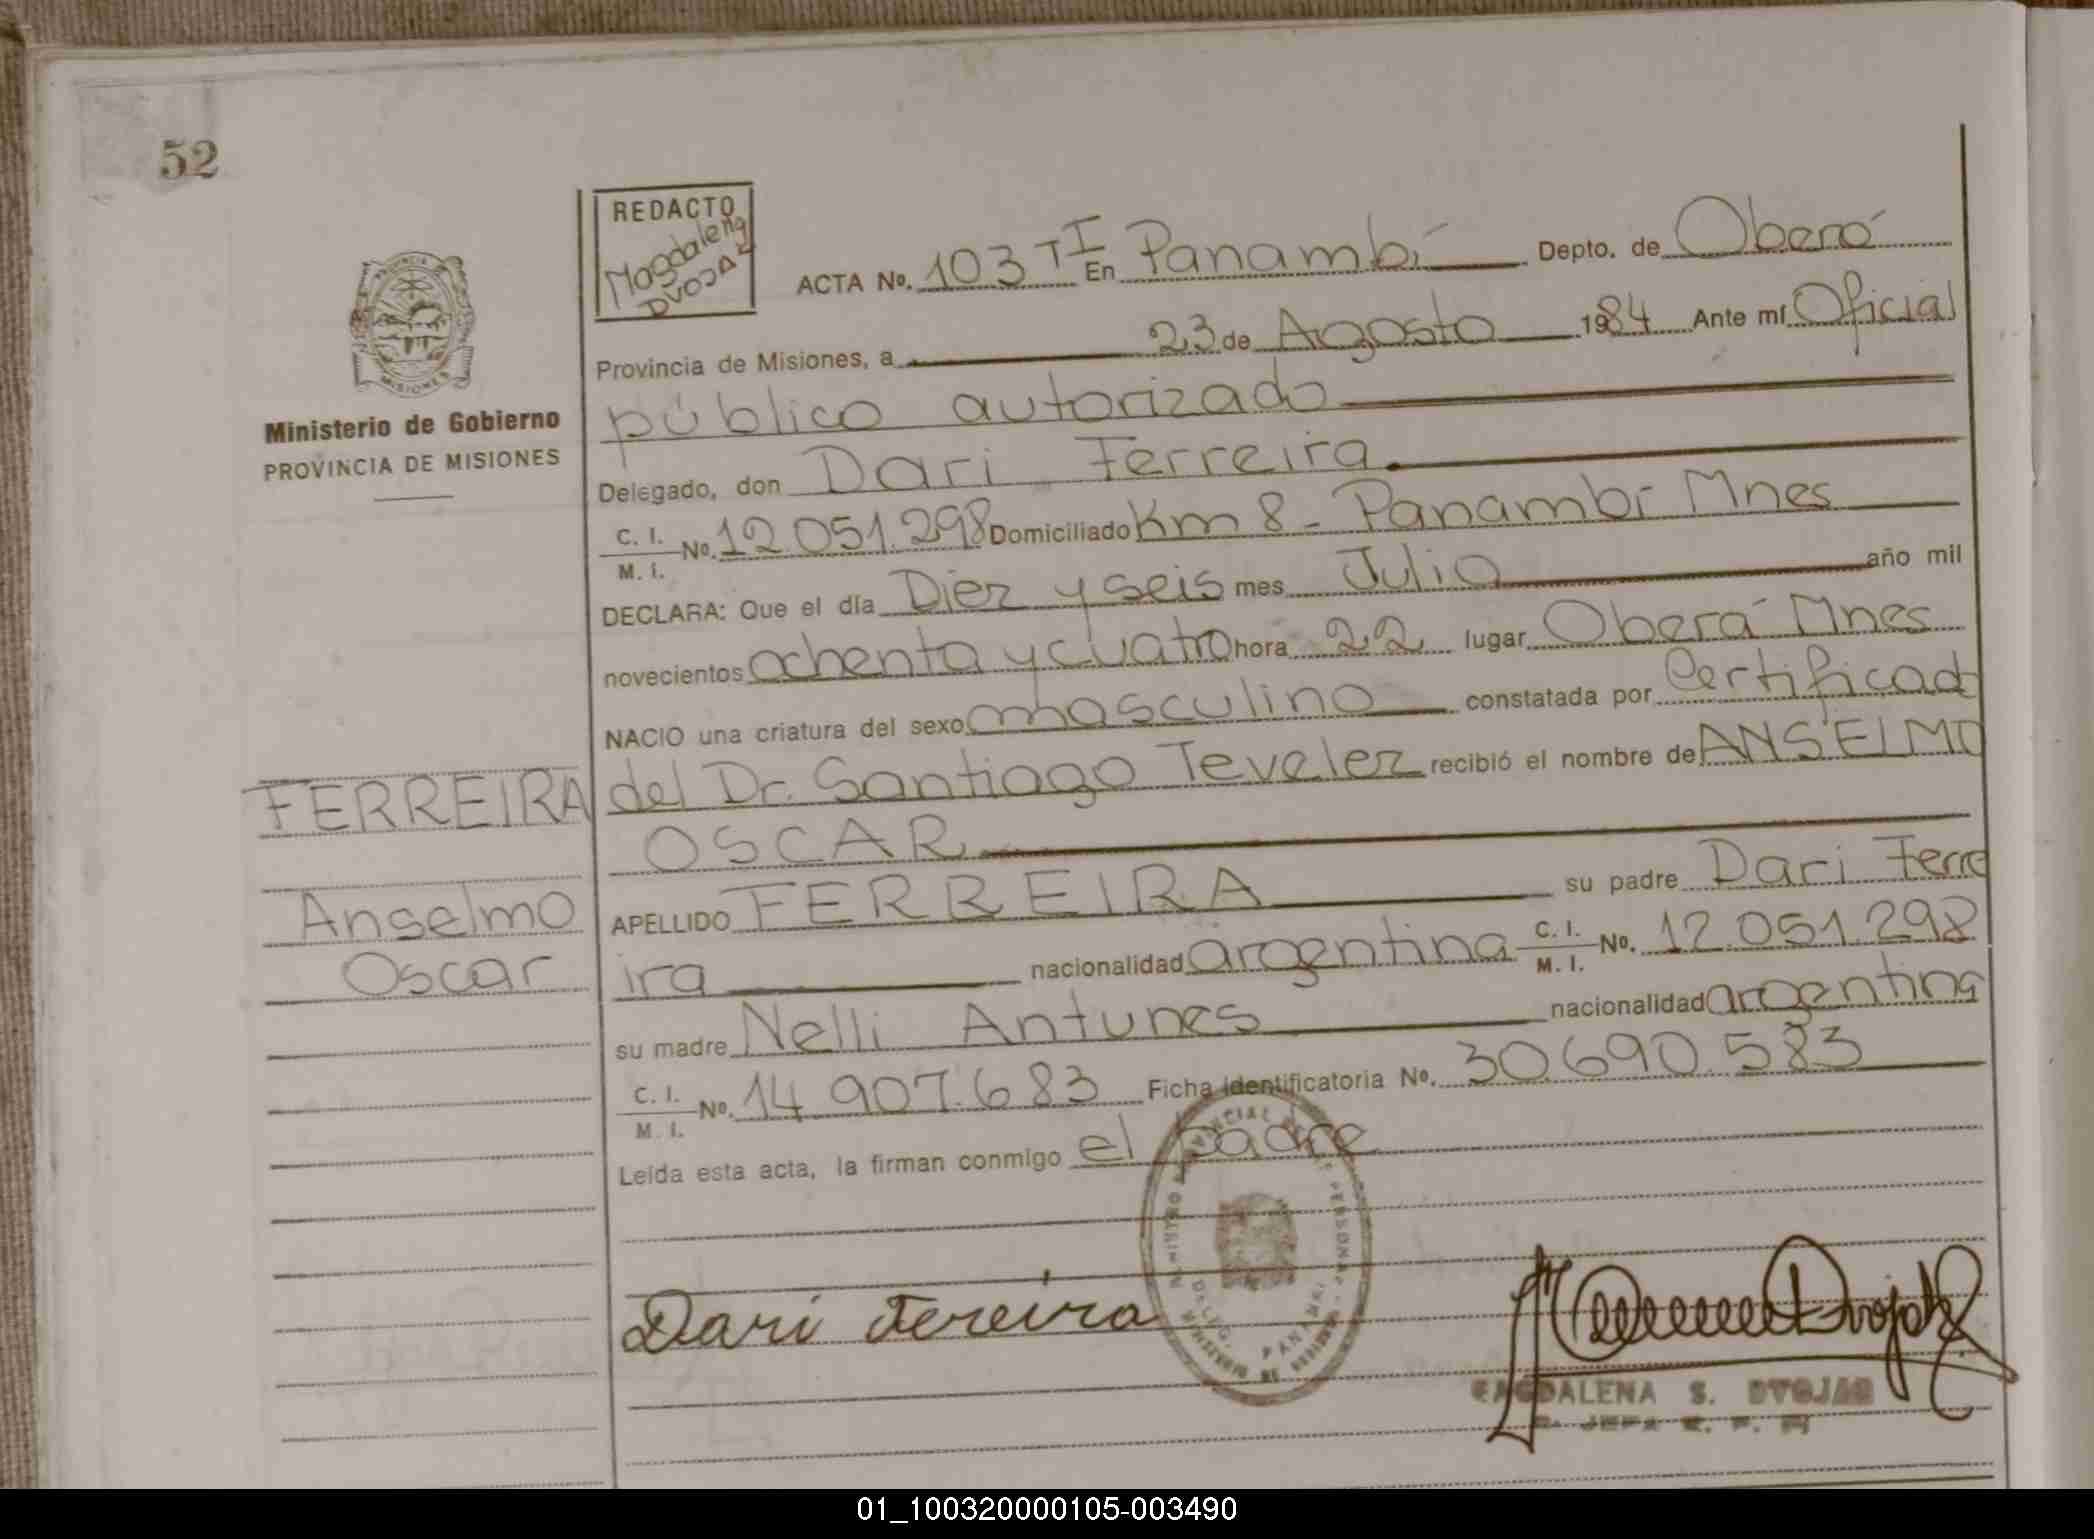 52
REDACTO
Magdalena
DVOJAK
ACTA No. 103 TI En Panambí Depto. de Oberá
Provincia de Misiones, a 23 de Agosto 1984 Ante mí Oficial
público autorizado
Delegado, don Dari Ferreira.
C. I. M. I. No. 12.051.298 Domiciliado Km 8 - Panambí Mnes
DECLARA: Que el día Diez y seis mes Julio año mil
novecientos ochenta y cuatro hora 22 lugar Oberá Mnes
NACIO una criatura del sexo masculino constatada por Certificad
del Dr. Santiago Teveler recibió el nombre de ANSELMO
OSCAR
APELLIDO FERREIRA su padre Dari Ferre
ira nacionalidad argentina C. I. M. I. No. 12.051.298
su madre Nelli Antunes nacionalidad argentina
C. I. M. I. No. 14.907.683 Ficha identificatoria No. 30.690.583
Leída esta acta, la firman conmigo el padre
Dari Fereira
MAGDALENA S. DVOJAK
Ministerio de Gobierno
PROVINCIA DE MISIONES
FERREIRA
Anselmo
Oscar
PROVINCIA
MISIONES
DELEG. PANAMBI
01_100320000105-003490